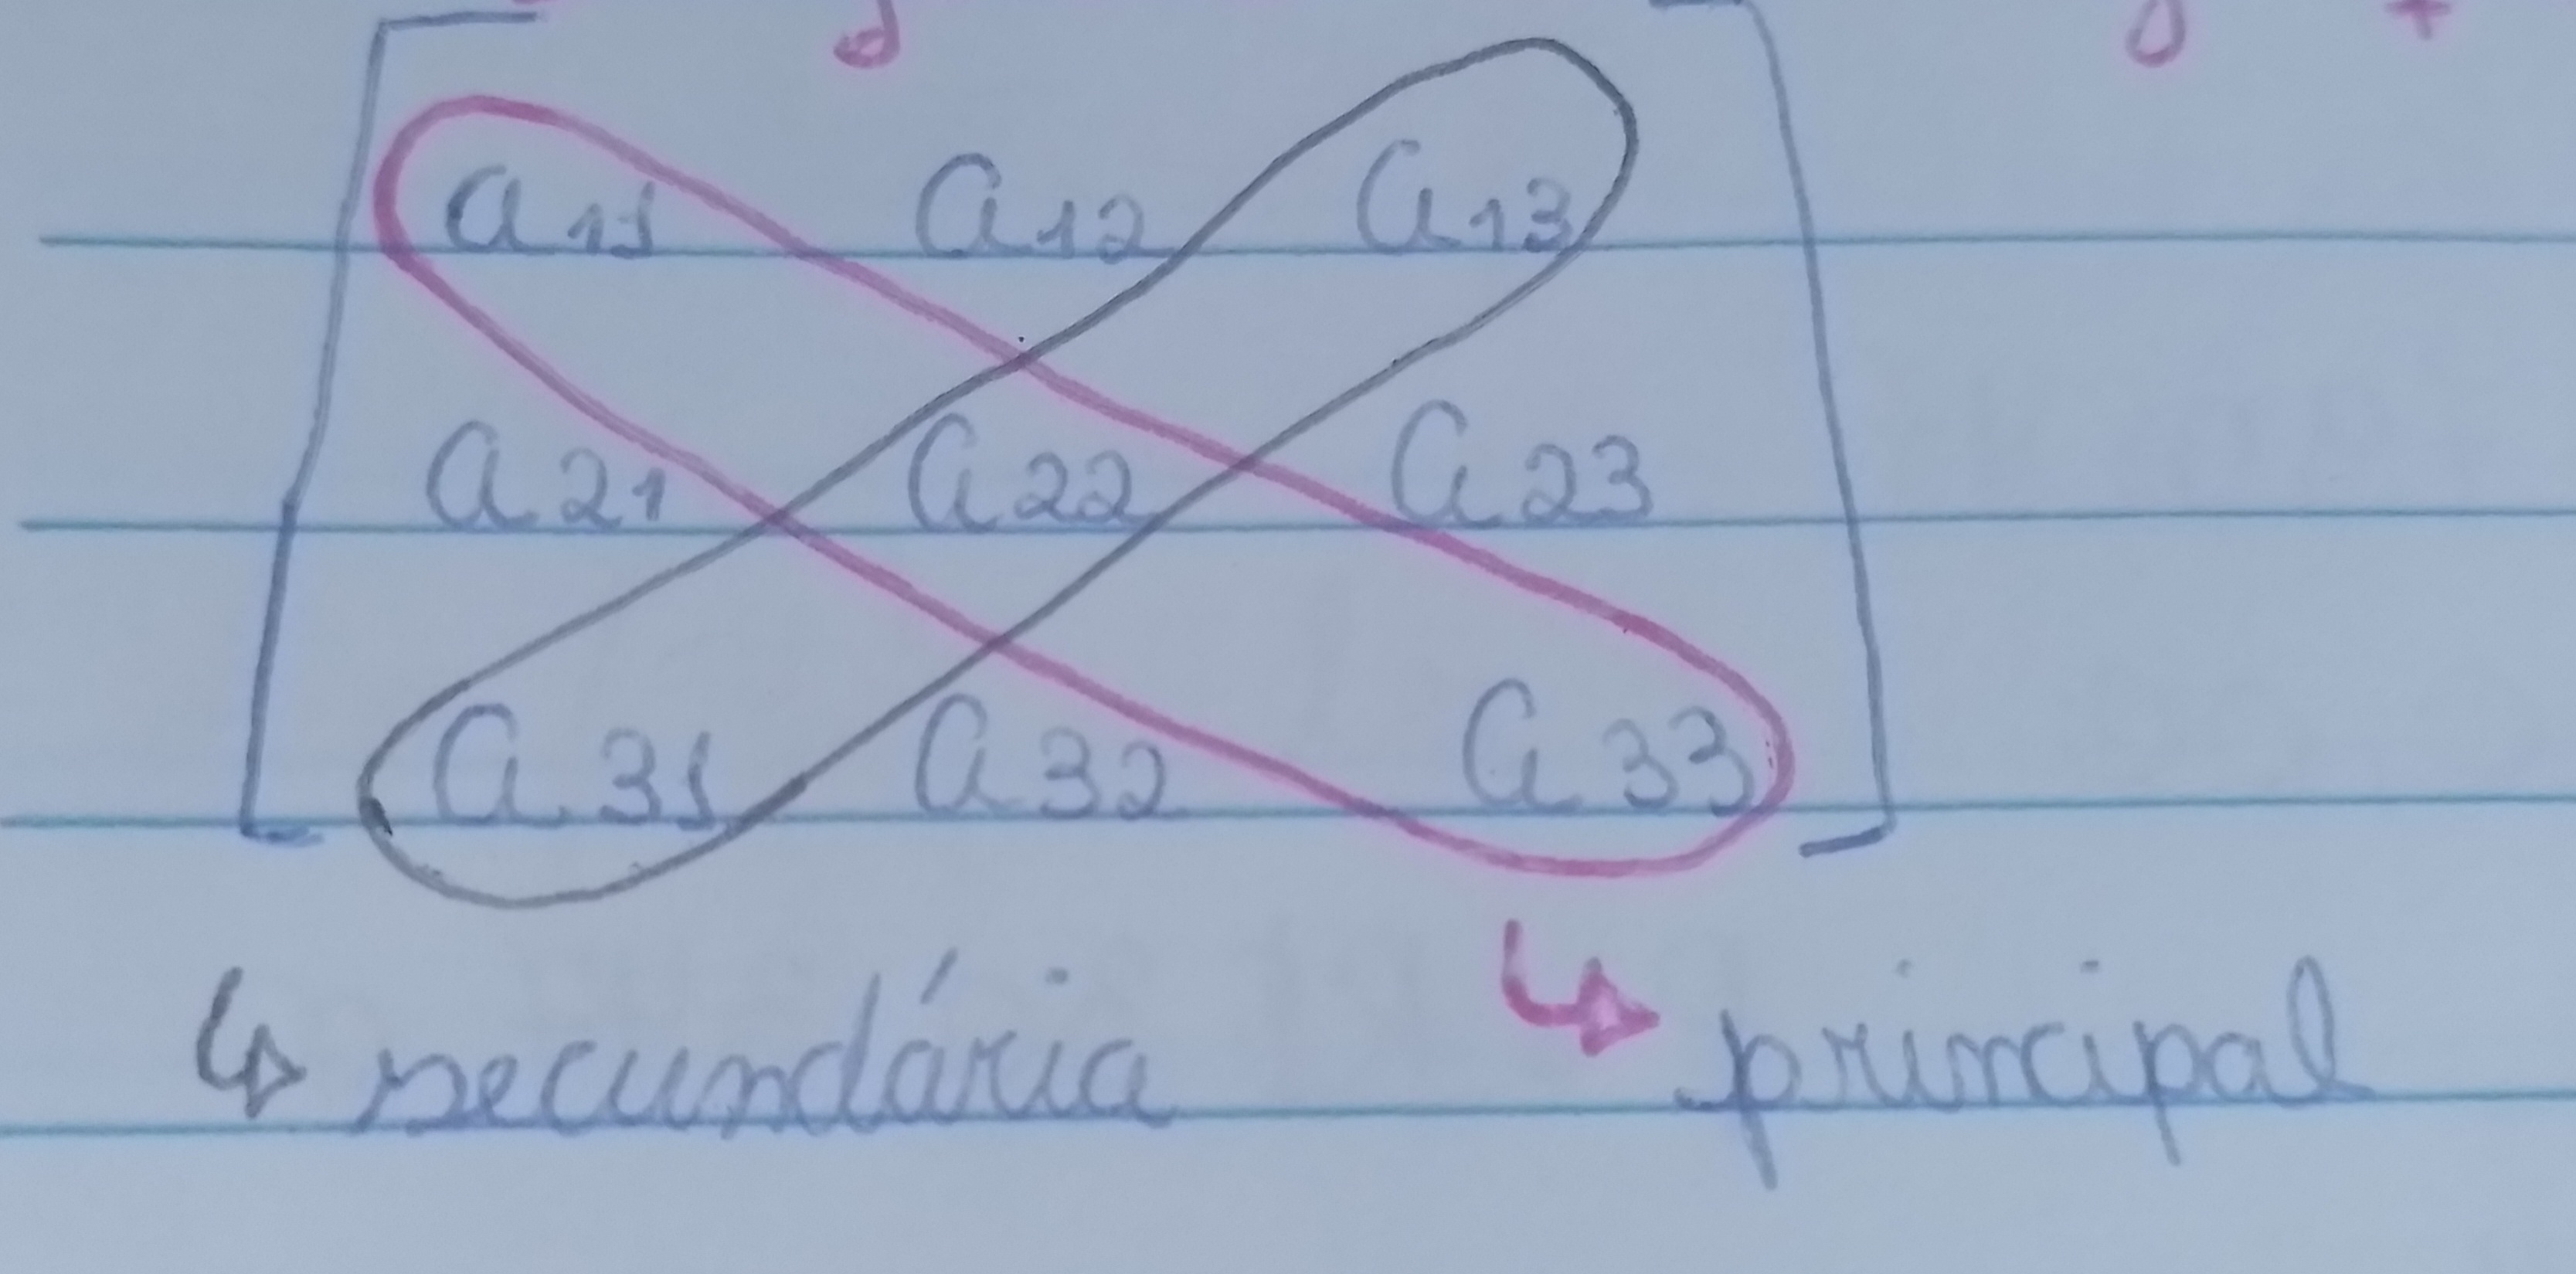 a11 a12 a13
a21 a22 a23
a31 a32 a33
↳ secundária ↳ principal